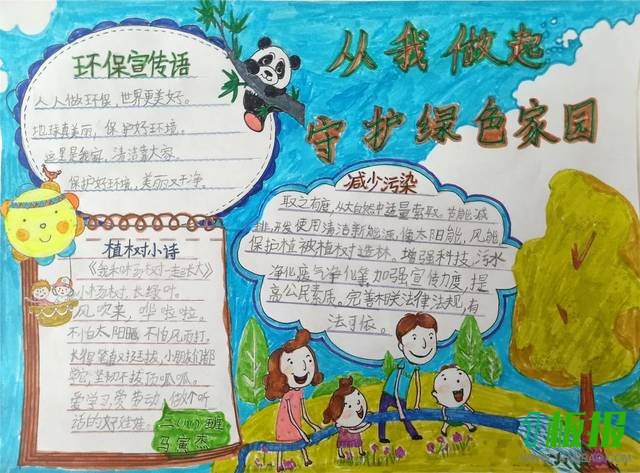 从我做起
守护绿色家园
环保宣传语
人人做环保,世界更美好。
地球真美丽,保护好环境。
这里是我家,清洁靠大家。
保护好环境,美丽又干净。
减少污染
取之有度,从大自然中适量索取。节能减
排,开发使用清洁新能源,像太阳能,风能
保护植被植树造林,增强科技,污水
净化废气净化等加强宣传力度,提
高公民素质。完善相关法律法规,有
法可依。
植树小诗
《我和小杨树一起长大》
小杨树,长绿叶。
风吹来,哗啦啦。
不怕太阳晒,不怕风雨打。
长得笔直又挺拔,小朋友们都
学它,坚韧不拔顶呱呱。
爱学习爱劳动,做个听
话的好娃娃。
二(八)班
马寅杰
板报